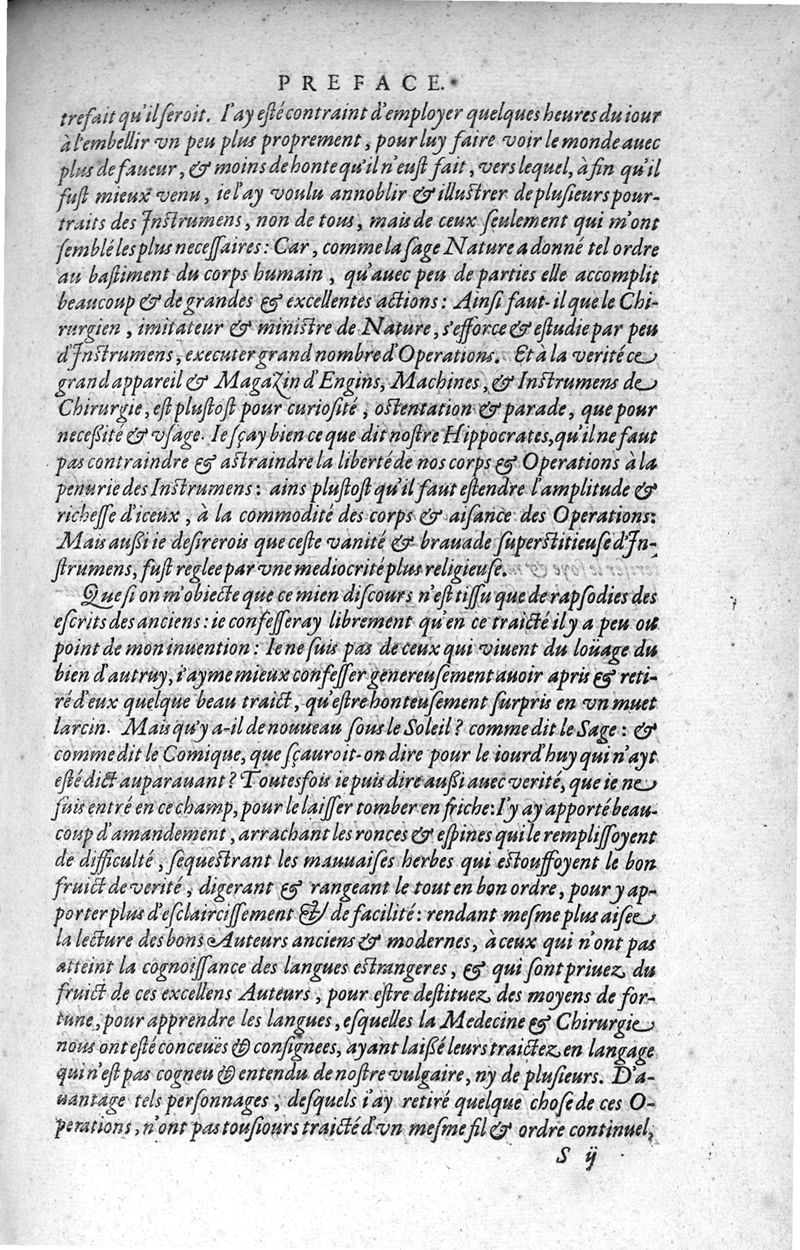 PREFACE.
trefait qu'il ſeroit. I'ay eſté contraint d'employer quelques heures du iour
à l'embellir vn peu plus proprement, pour luy faire voir le monde auec
plus de faueur, & moins de honte qu'il n'euſt fait, vers lequel, à fin qu'il
fuſt mieux venu, ie l'ay voulu annoblir & illuſtrer de pluſieurs pour-
traits des Inſtrumens, non de tous, mais de ceux ſeulement qui m'ont
ſemblé les plus neceſſaires: Car, comme la ſage Nature a donné tel ordre
au baſtiment du corps humain, qu'auec peu de parties elle accomplit
beaucoup & de grandes & excellentes actions: Ainſi faut-il que le Chi-
rurgien, imitateur & miniſtre de Nature, s'efforce & eſtudie par peu
d'Inſtrumens, executer grand nombre d'Operations. Et à la verité ce
grand appareil & Magazin d'Engins, Machines, & Inſtrumens de
Chirurgie, eſt pluſtoſt pour curioſité, oſtentation & parade, que pour
neceßité & vſage. Ie ſçay bien ce que dit noſtre Hippocrates, qu'il ne faut
pas contraindre & aſtraindre la liberté de nos corps & Operations à la
penurie des Inſtrumens: ains pluſtoſt qu'il faut eſtendre l'amplitude &
richeſſe d'iceux, à la commodité des corps & aiſance des Operations:
Mais außi ie deſirerois que ceſte vanité & brauade ſuperſtitieuſe d'In-
ſtrumens, fuſt reglee par vne mediocrité plus religieuſe.
Que ſi on m'obiecte que ce mien diſcours n'eſt tiſſu que de rapſodies des
eſcrits des anciens: ie confeſſeray librement qu'en ce traicté il y a peu ou
point de mon inuention: Ie ne ſuis pas de ceux qui viuent du loüage du
bien d'autruy, i'ayme mieux confeſſer genereuſement auoir apris & reti-
ré d'eux quelque beau traict, qu'eſtre honteuſement ſurpris en vn muet
larcin. Mais qu'y a-il de nouueau ſous le Soleil? comme dit le Sage: &
comme dit le Comique, que ſçauroit-on dire pour le iourd'huy qui n'ayt
eſté dict auparauant? Toutesfois ie puis dire außi auec verité, que ie ne
ſuis entré en ce champ, pour le laiſſer tomber en friche: I'y ay apporté beau-
coup d'amandement, arrachant les ronces & eſpines qui le rempliſſoyent
de difficulté, ſequeſtrant les mauuaiſes herbes qui eſtouffoyent le bon
fruict de verité, digerant & rangeant le tout en bon ordre, pour y ap-
porter plus d'eſclairciſſement & de facilité: rendant meſme plus aiſee
la lecture des bons Auteurs anciens & modernes, à ceux qui n'ont pas
atteint la cognoiſſance des langues eſtrangeres, & qui ſont priuez du
fruict de ces excellens Auteurs, pour eſtre deſtituez des moyens de for-
tune, pour apprendre les langues, eſquelles la Medecine & Chirurgie
nous ont eſté conceuës & conſignees, ayant laißé leurs traictez en langage
qui n'eſt pas cogneu & entendu de noſtre vulgaire, ny de pluſieurs. D'a-
uantage tels perſonnages, deſquels i'ay retiré quelque choſe de ces O-
perations, n'ont pas touſiours traicté d'vn meſme fil & ordre continuel,
S ij